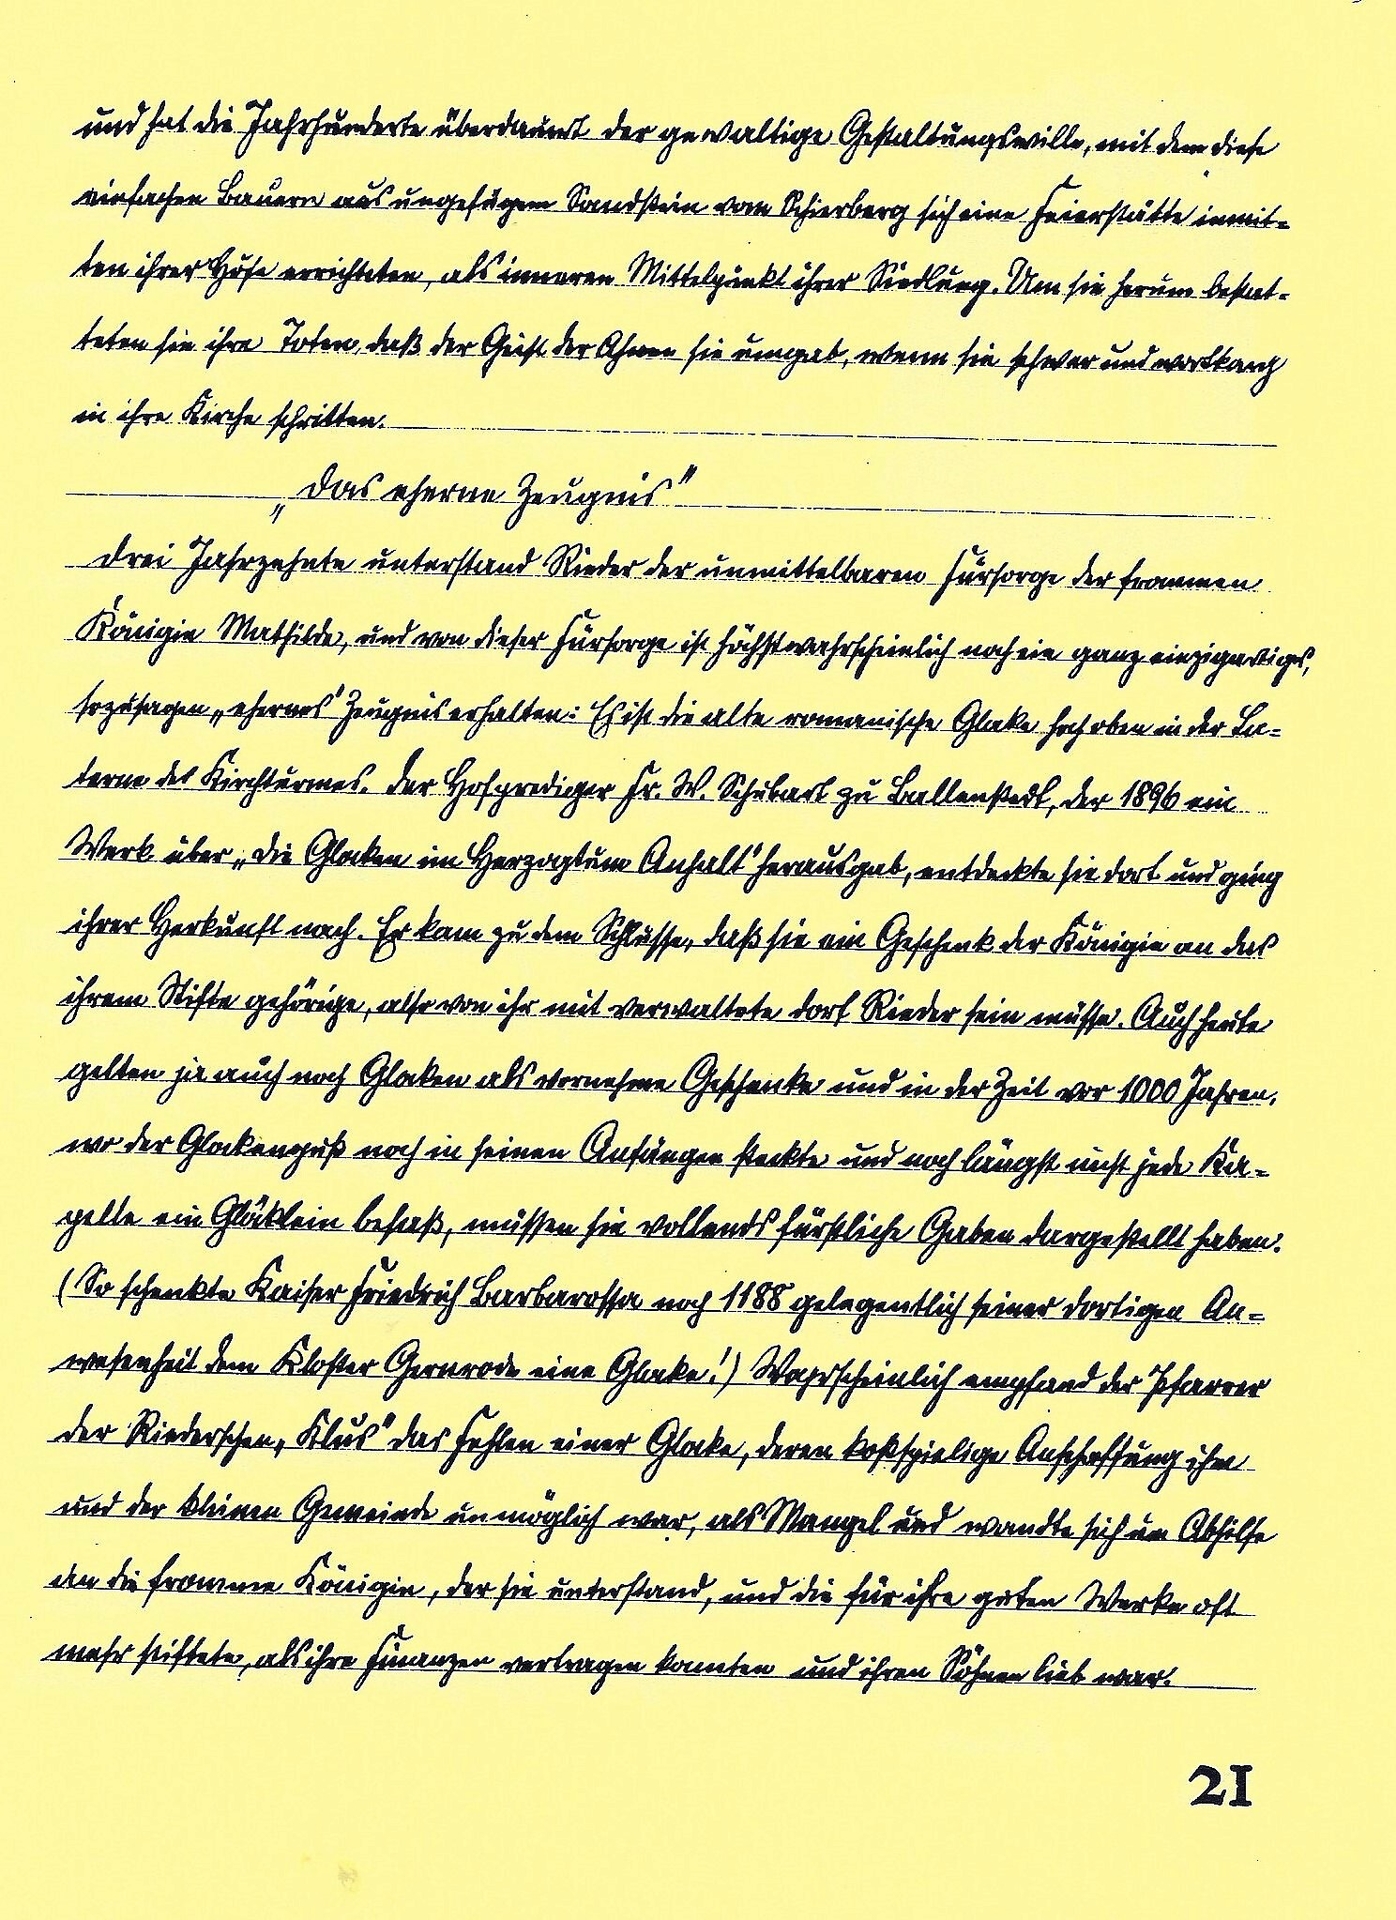 und hat die Jahrhunderte überdauert der gewaltige Gestaltungswille, mit dem diese
einfachen Bauern aus ungefügem Sandstein vom Schierberg sich eine Feierstätte inmit-
ten ihrer Höfe errichteten, als inneren Mittelpunkt ihrer Siedlung. Um sie herum bestat-
teten sie ihre Toten, daß der Geist der Ahnen sie umgab, wenn sie schwer und wortkarg
in ihre Kirche schritten.
„Das eherne Zeugnis"
Drei Jahrzehnte unterstand Rieder der unmittelbaren Fürsorge der frommen
Königin Mathilde, und von dieser Fürsorge ist höchstwahrscheinlich noch ein ganz einzigartiges,
sozusagen „ehernes" Zeugnis erhalten: Es ist die alte romanische Glocke hoch oben in der La-
terne des Kirchturmes. Der Hofprediger Fr. W. Schubart zu Ballenstedt, der 1896 ein
Werk über „Die Glocken im Herzogtum Anhalt" herausgab, entdeckte sie dort und ging
ihrer Herkunft nach. Er kam zu dem Schlusse, daß sie ein Geschenk der Königin an das
ihrem Stifte gehörige, also von ihr mit verwaltete Dorf Rieder sein müsse. Auch heute
gelten ja auch noch Glocken als vornehme Geschenke und in der Zeit vor 1000 Jahren,
wo der Glockenguß noch in seinen Anfängen steckte und noch längst nicht jede Ka-
pelle ein Glöcklein besaß, müssen sie vollends fürstliche Gaben dargestellt haben.
(So schenkte Kaiser Friedrich Barbarossa noch 1188 gelegentlich seiner dortigen An-
wesenheit dem Kloster Gernrode eine Glocke!) Wahrscheinlich empfand der Pfarrer
der Riederschen „Klus" das Fehlen einer Glocke, deren kostspielige Anschaffung ihm
und der kleinen Gemeinde unmöglich war, als Mangel und wandte sich um Abhilfe
an die fromme Königin, der sie unterstand, und die für ihre guten Werke oft
mehr stiftete, als ihre Finanzen vertragen konnten und ihren Söhnen lieb war.
21